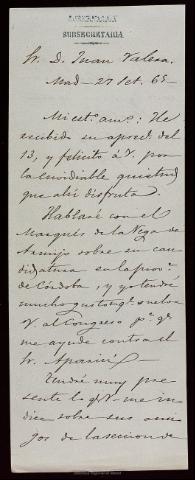 SUBSECRETARIA
Sr. D. Juan Valera.
Mad— 27 Set. 65—
Mi est. am.: He
recibido su aprec. del
13, y felicito á V. por
la envidiable quietud
que ahí disfruta.
Hablaré con el
Marqués de la Vega de
Armijo sobre su can
didatura en la prov.
de Córdoba, y yo tendré
mucho gusto en q. vuelva
V. al Congreso p.ª q.
me ayude contra el
Sr. Aparici—
Tendré muy pre
sente lo q. V. me in
dica sobre sus ami
gos de la seccion de